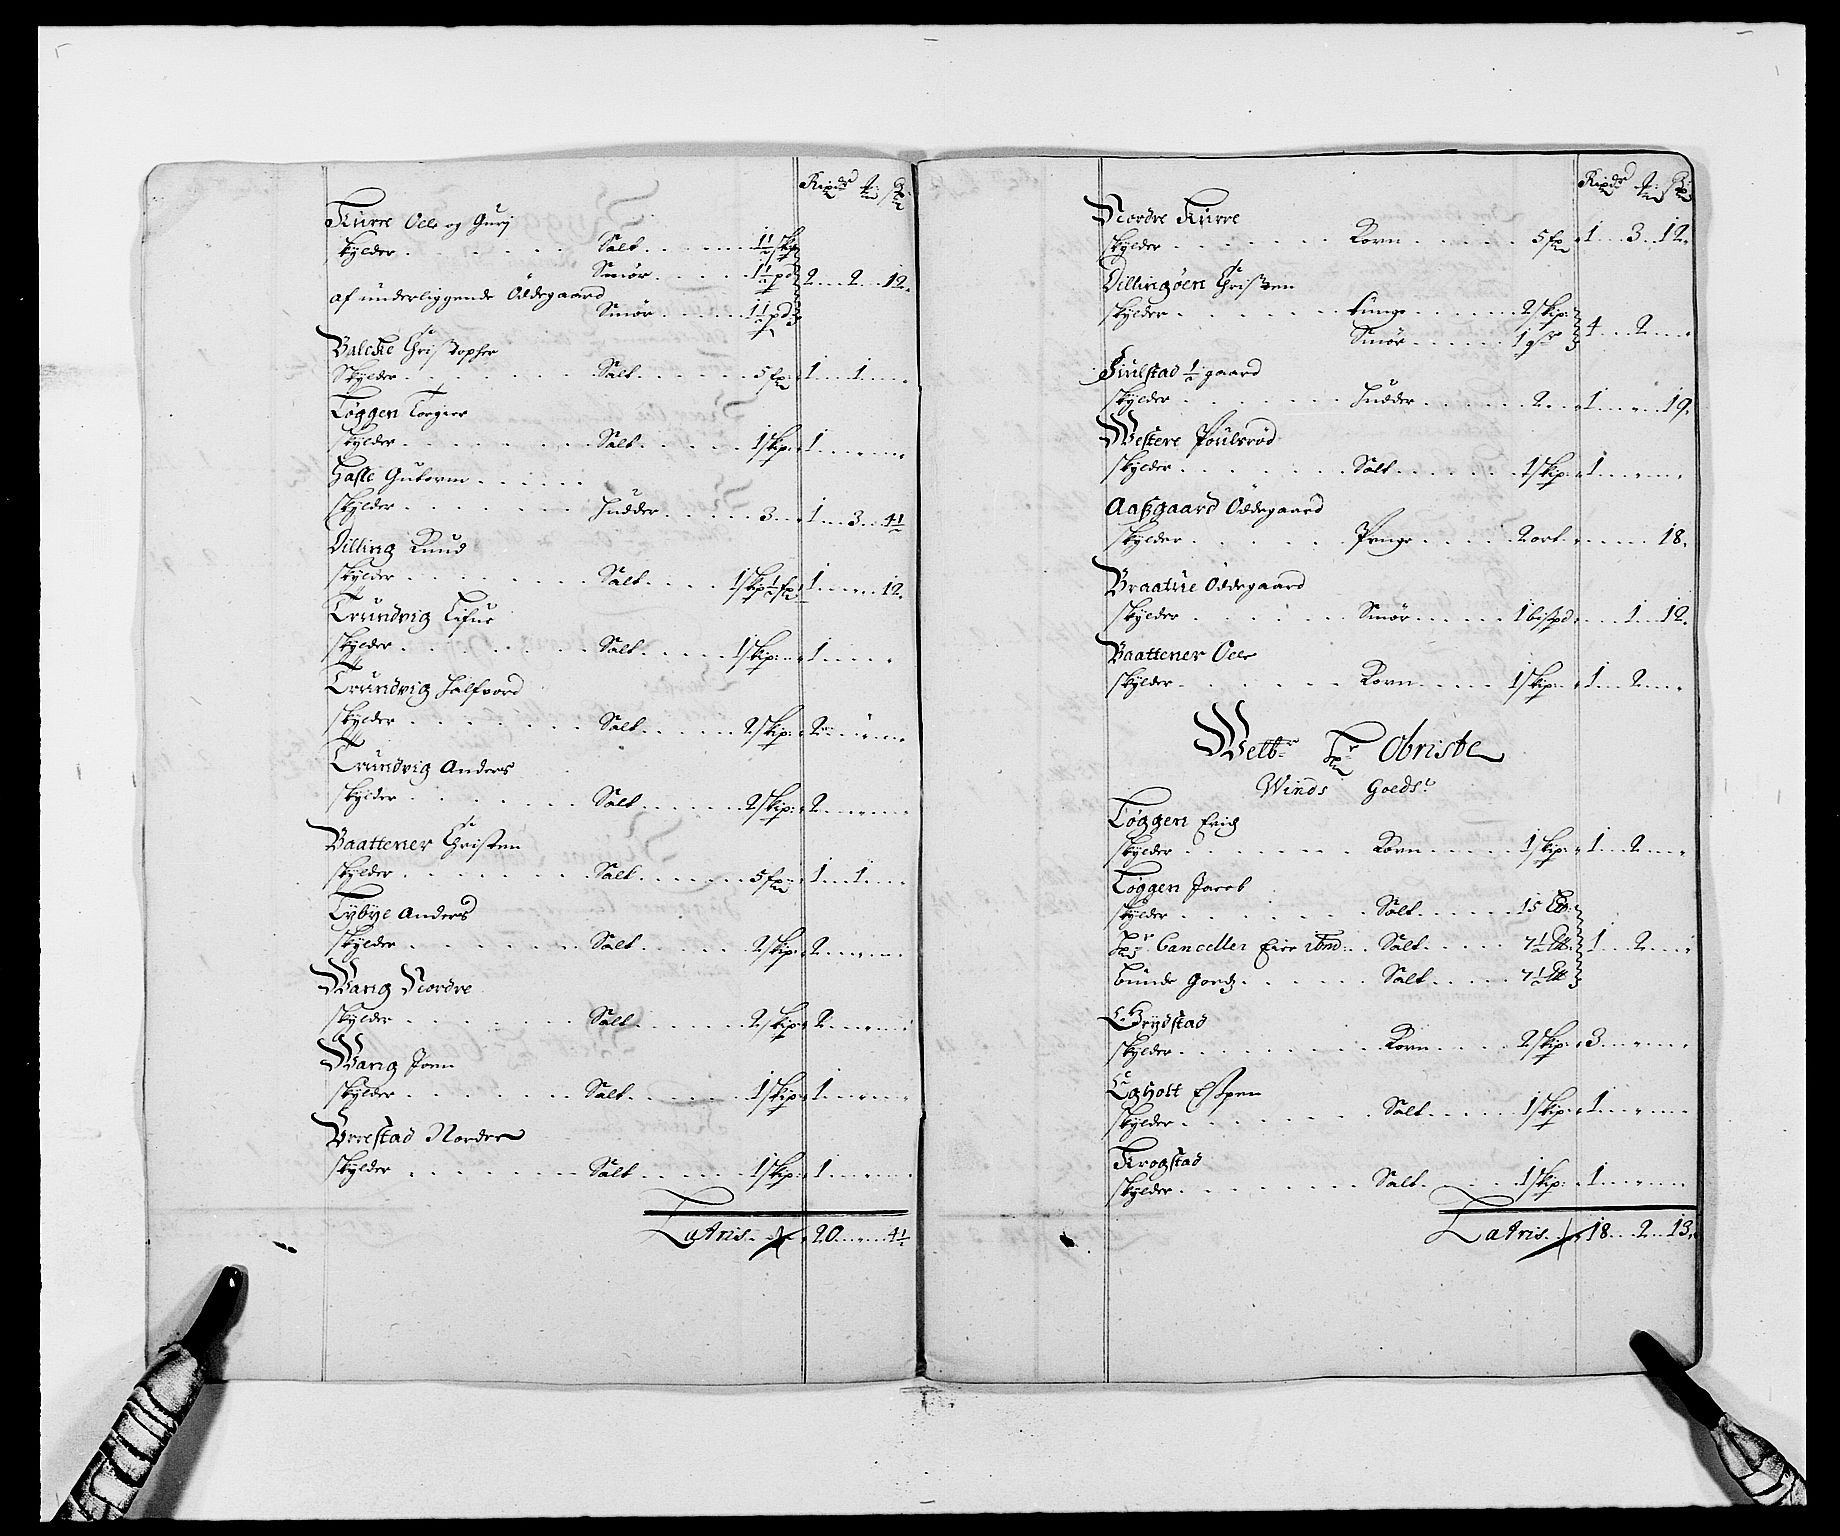 Rixdr ₰ sk
Kurre Olle og Gurj
skylder . . . . . . Salt . . . . . 1½ skip
Smør . . . . . 1½ pd 2 . . 2 . . 12.
af underliggende Ödegaard
Smør . . . . . 1½ pd
Balche Christopher
Skylder . . . . . . Salt . . . . . 5 fr 1 . . 1 . . „
Tøggen Torgier
skylder . . . . . . Salt . . . . . 1 skip: 1 . . „ . . „
Hasle Guttorm . . . . . .
skylder . . . . . . Hudder . . . . . 3 . . 1 . . 3 . . 4½
Dilling Knud
skylder . . . . . . Salt . . . . 1 skip ½ fr 1 . . „ . . 12.
Trundvig
skylder . . . . . . Salt . . . . . 1 skip: 1 . . . .
Trundvig Halfvord
skylder . . . . . . Salt . . . . . 2 skip: 2 . . „ . . „
Trundvig Anders
skylder . . . . . . Salt . . . . . 2 skip: 2 . . „ . . „
Baattener Christen
skylder . . . . . . Salt . . . . . 5 fr 1 . . 1 . . „
Tybye Anders
skylder . . . . . . Salt . . . . . 2 skip: 2 . . „ . . „
Wang Nordre
skylder . . . . . . Salt . . . . . 2 skip: 2 . . „ . . „
Wang Joen
skylder . . . . . . Salt . . . . . 1 skip: 1 . . „ . . „
Norder
skylder . . . . . . Salt . . . . . 1 skip: 1 . . „ . . „
Latris . . 20 . . „ . . 4½
Rixdr ₰ sk
Nordre Kurre
skylder . . . . . . Korn . . . . . 5 fr 1 . . 3 . . 12.
Dillingøen Christen
skylder . . . . . . . . . . . 2 skip:
Smør . . . . . 1 4 . . 2 . . „
½ gaard
skylder . . . . . . Hudder . . . . . 2 . . 1 . . „ . . 19.
Westere Poulsrød
skylder . . . . . . Salt . . . . . 1 skip: 1 . . „ . . „
Aassgaard Ödegaard
skylder . . . . . . Penge . . . . 2 ort . . . . . . 18.
Braatue Ödegaard
skylder . . . . . . Smør . . . . . 1 bispd . . . 1 . . 12.
Baattener Olle
skylder . . . . . . Korn . . . . . 1 skip: 1 . . 2 . . „
Welbr Hr Obriste
Winds Goeds:
Tøggen Erich
skylder . . . . . . Korn . . . . . 1 skip: 1 . . 2 . . „
Tøggen Jacob
skylder . . . . . . Salt . . . . . 15 Lb:
Hr Cancelli Eier ibm: . Salt . . . . 7½ Lb: 1 . . 2 . . „
Bunde Goedz . . . . . . Salt . . . . 7½ Lb
Grydstad
skylder . . . . . . Korn . . . . . 2 skip: 3 . . „ . . „
Egholt Espen
skylder . . . . . . Salt . . . . . 1 skip: 1 . . „ . . „
Krogstad
skylder . . . . . . Salt . . . . . 1 skip: 1 . . „ . . „
Latris . . 18 . . 2 . . 13.